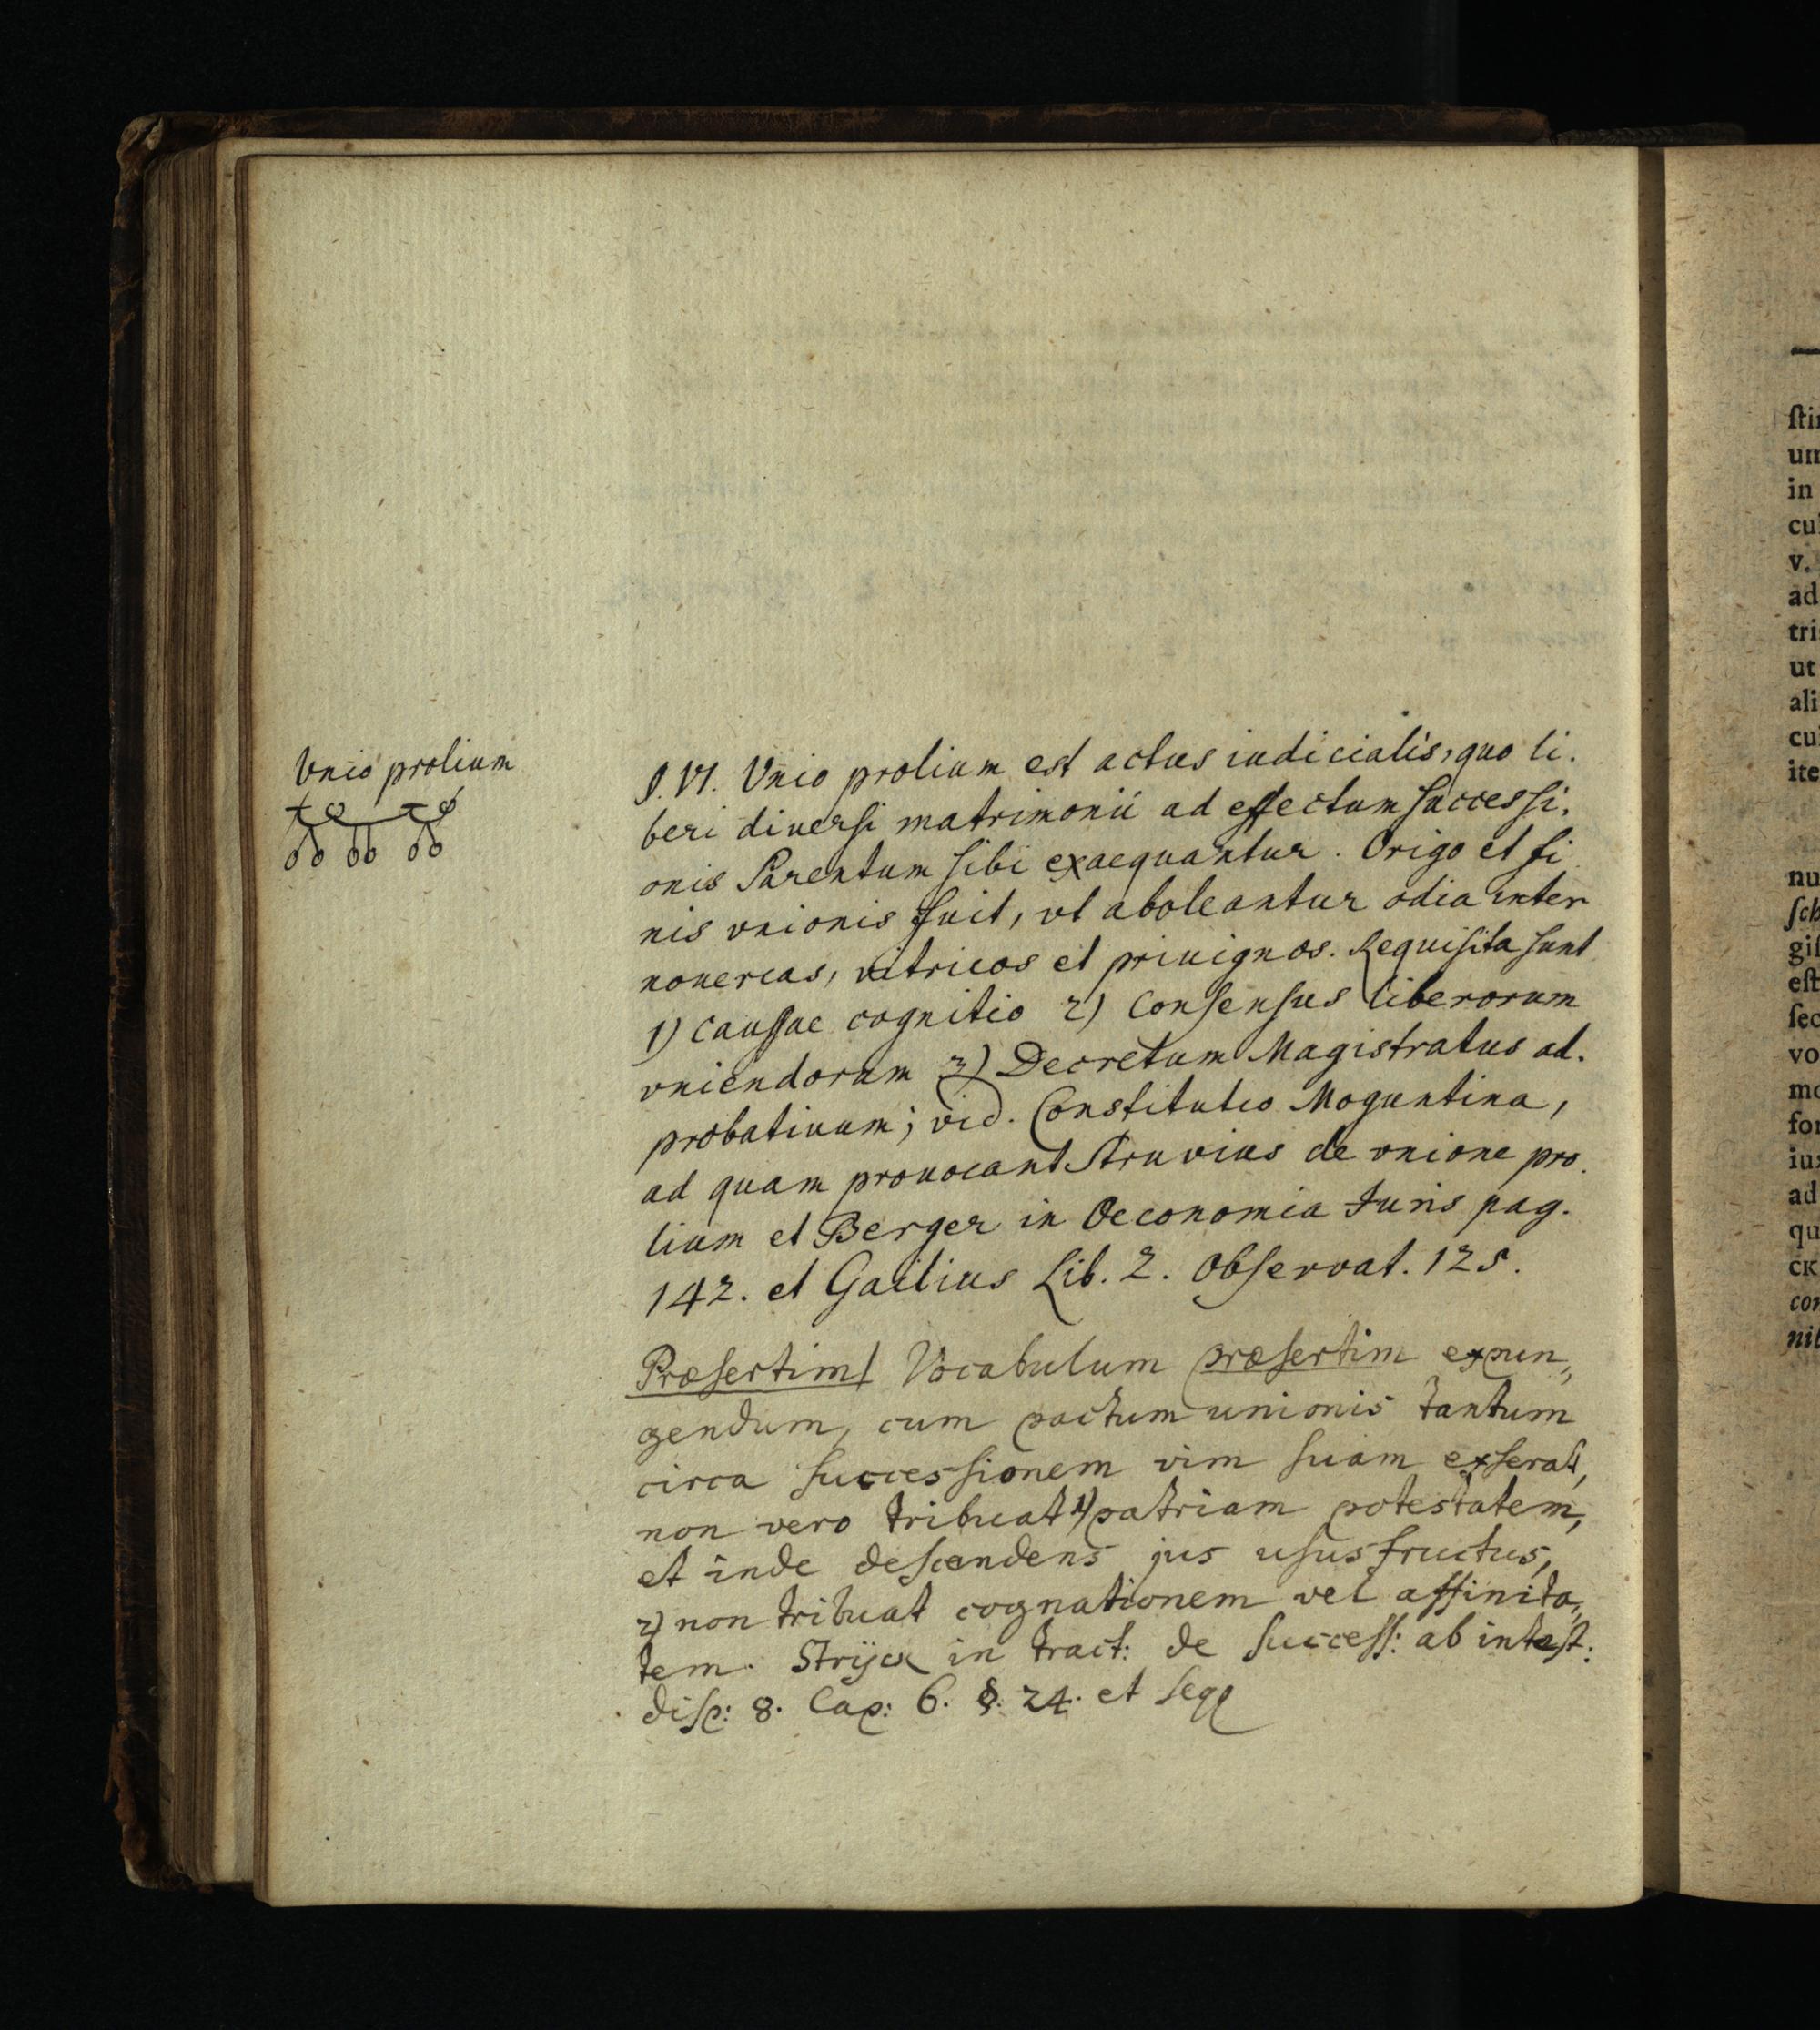 Vnio prolium
§. VI. Vnio prolium est actus iudicialis, quo li.
beri diuersi matrimonii ad effectum successi.
onis Parentum sibi exaequantur. Origo et fi
nis vnionis fuit, vt aboleantur odia inter
nouercas, vitricos et priuignos. Requisita sunt
1) Caussae cognitio 2) Consensus liberorum
vniendorum 3) Decretum Magistratus ad.
probatiuum; vid. Constitutio Moguntina,
ad quam prouocant Struvius de vnione pro.
lium et Berger in Oeconomia Juris pag.
142. et Gailius Lib. 2. Observat. 125.
Præsertim/ Vocabulum præsertim expun„
gendum, cum pactum unionis tantum
circa successionem vim suam exserat,
non vero tribuat 1) patriam potestatem,
et inde descendens jus ususfructus,
2) non tribuat cognationem vel affinita„
tem. Strijck in tract: de success: ab intest:
disp: 8. Cap: 6. §. 24. et seqq
ad
tri
ut
ali
ite
in
v.
nu
est
vo
ad
qu